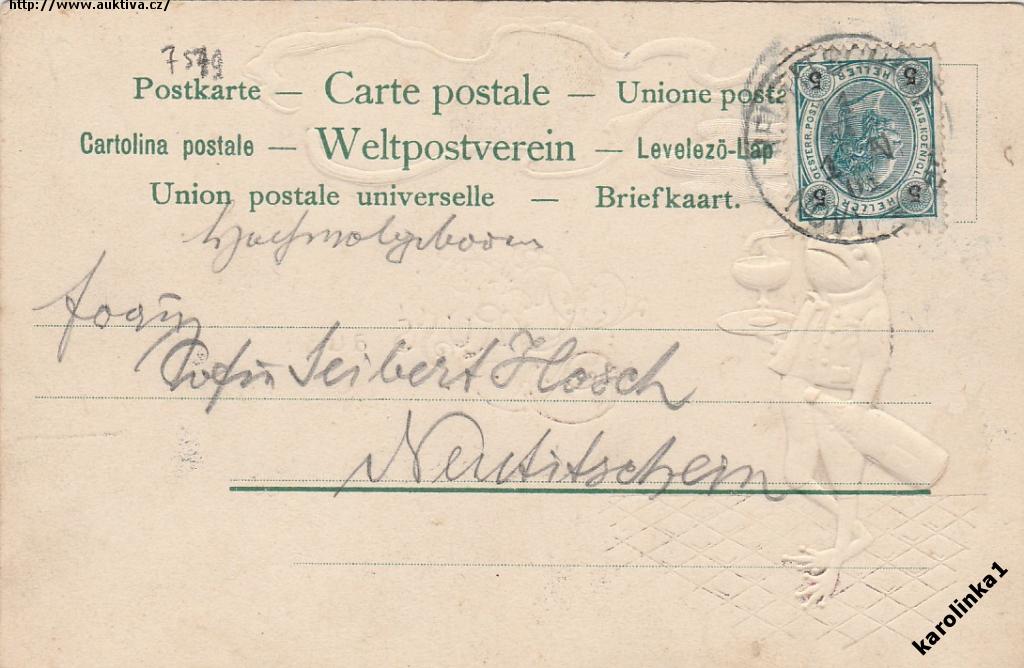 http://www.auktiva.cz/
7579
Postkarte — Carte postale — Unione posta
Cartolina postale — Weltpostverein — Levelező-Lap
Union postale universelle — Briefkaart.
Hochwolgeboren
Sofie Seibert Hosch
Neutitschein
5 HELLER 5
OESTERR. POST
KAIS. KOENIGL.
5 HELLER 5
karolinka1